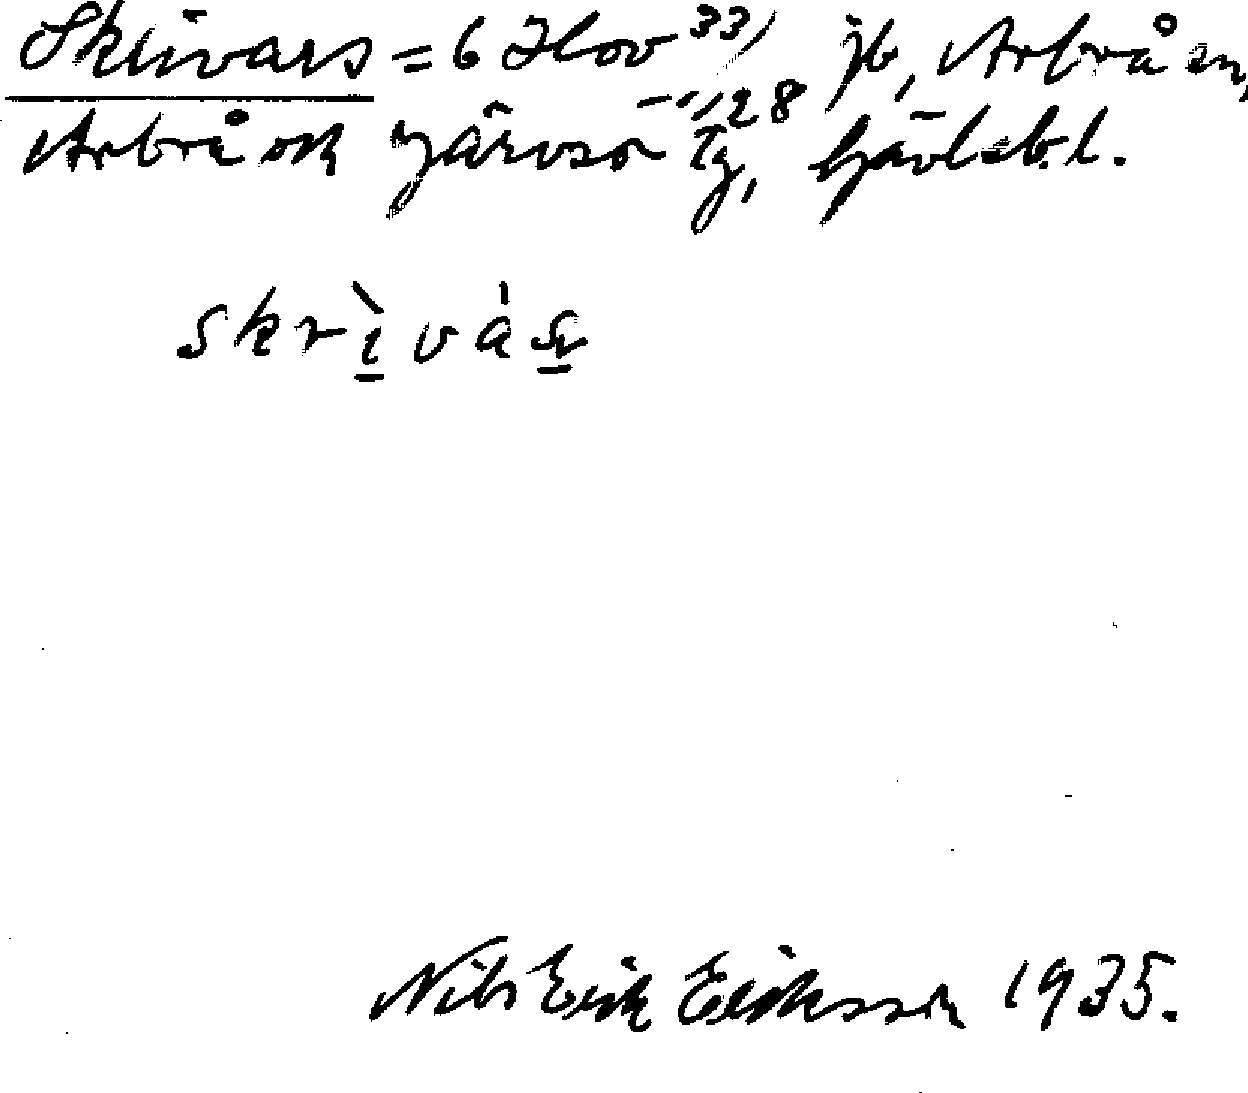 Skrivars = 6 Hov 33/ jb, Arbrå sn,
Arbrå och Järvsö –"–28 Tg, Gävleb. l.
skrìvás
Nils Erik Eriksson 1935.